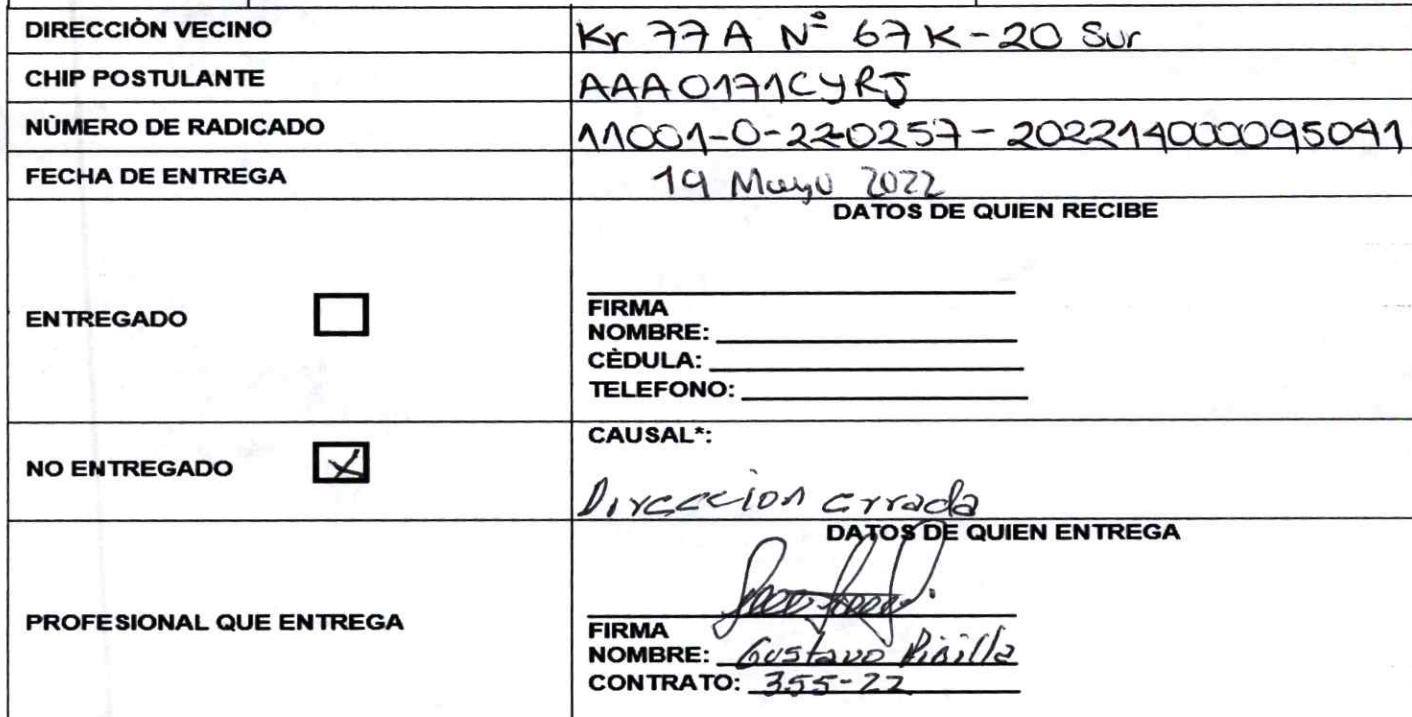 DIRECCIÒN VECINO Kr 77A Nº 67K-20 Sur
CHIP POSTULANTE AAA0171CYRJ
NÙMERO DE RADICADO 11001-0-220257-202214000095041
FECHA DE ENTREGA 19 Mayo 2022
DATOS DE QUIEN RECIBE
ENTREGADO
FIRMA
NOMBRE:
CÈDULA:
TELEFONO:
NO ENTREGADO X
CAUSAL*:
Direccion errada
DATOS DE QUIEN ENTREGA
PROFESIONAL QUE ENTREGA
FIRMA
NOMBRE: Gustavo Pinilla
CONTRATO: 355-22